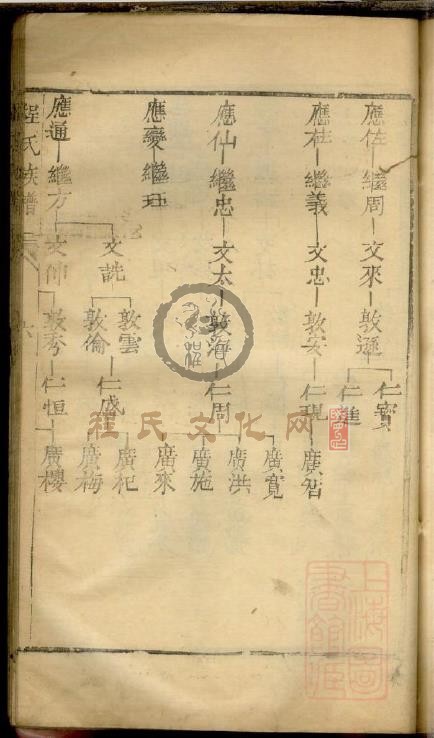 應佐 繼周 文來 敦遜 仁寳
仁進
應在 繼義 文忠 敦安 仁現 廣智
應仙 繼忠 文太 敦海 仁周 廣寬
廣洪
廣施
廣來
應變 繼珏
應通 繼方 文詵 敦雲
敦倫 仁成 廣杞
廣梅
文仲 敦秀 仁恒 廣櫻
程氏族譜
六
程氏文化网
上海圖書館藏